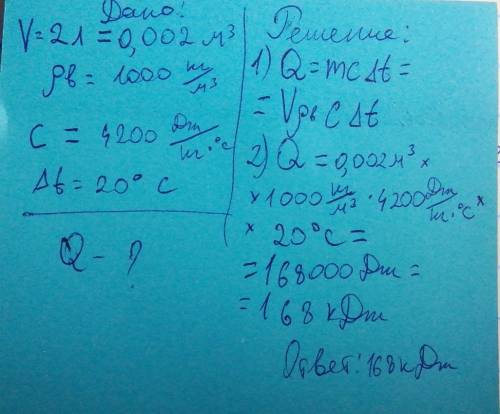 Дано:
V = 2 л = 0,002 м³
ρв = 1000 кг/м³
C = 4200 Дж/кг·°C
Δt = 20° C
Q - ?
Решение:
1) Q = mCΔt =
= Vρв C Δt
2) Q = 0,002 м³ ×
× 1000 кг/м³ · 4200 Дж/кг·°C ×
× 20°C =
= 168000 Дж =
= 168 кДж
Ответ: 168 кДж